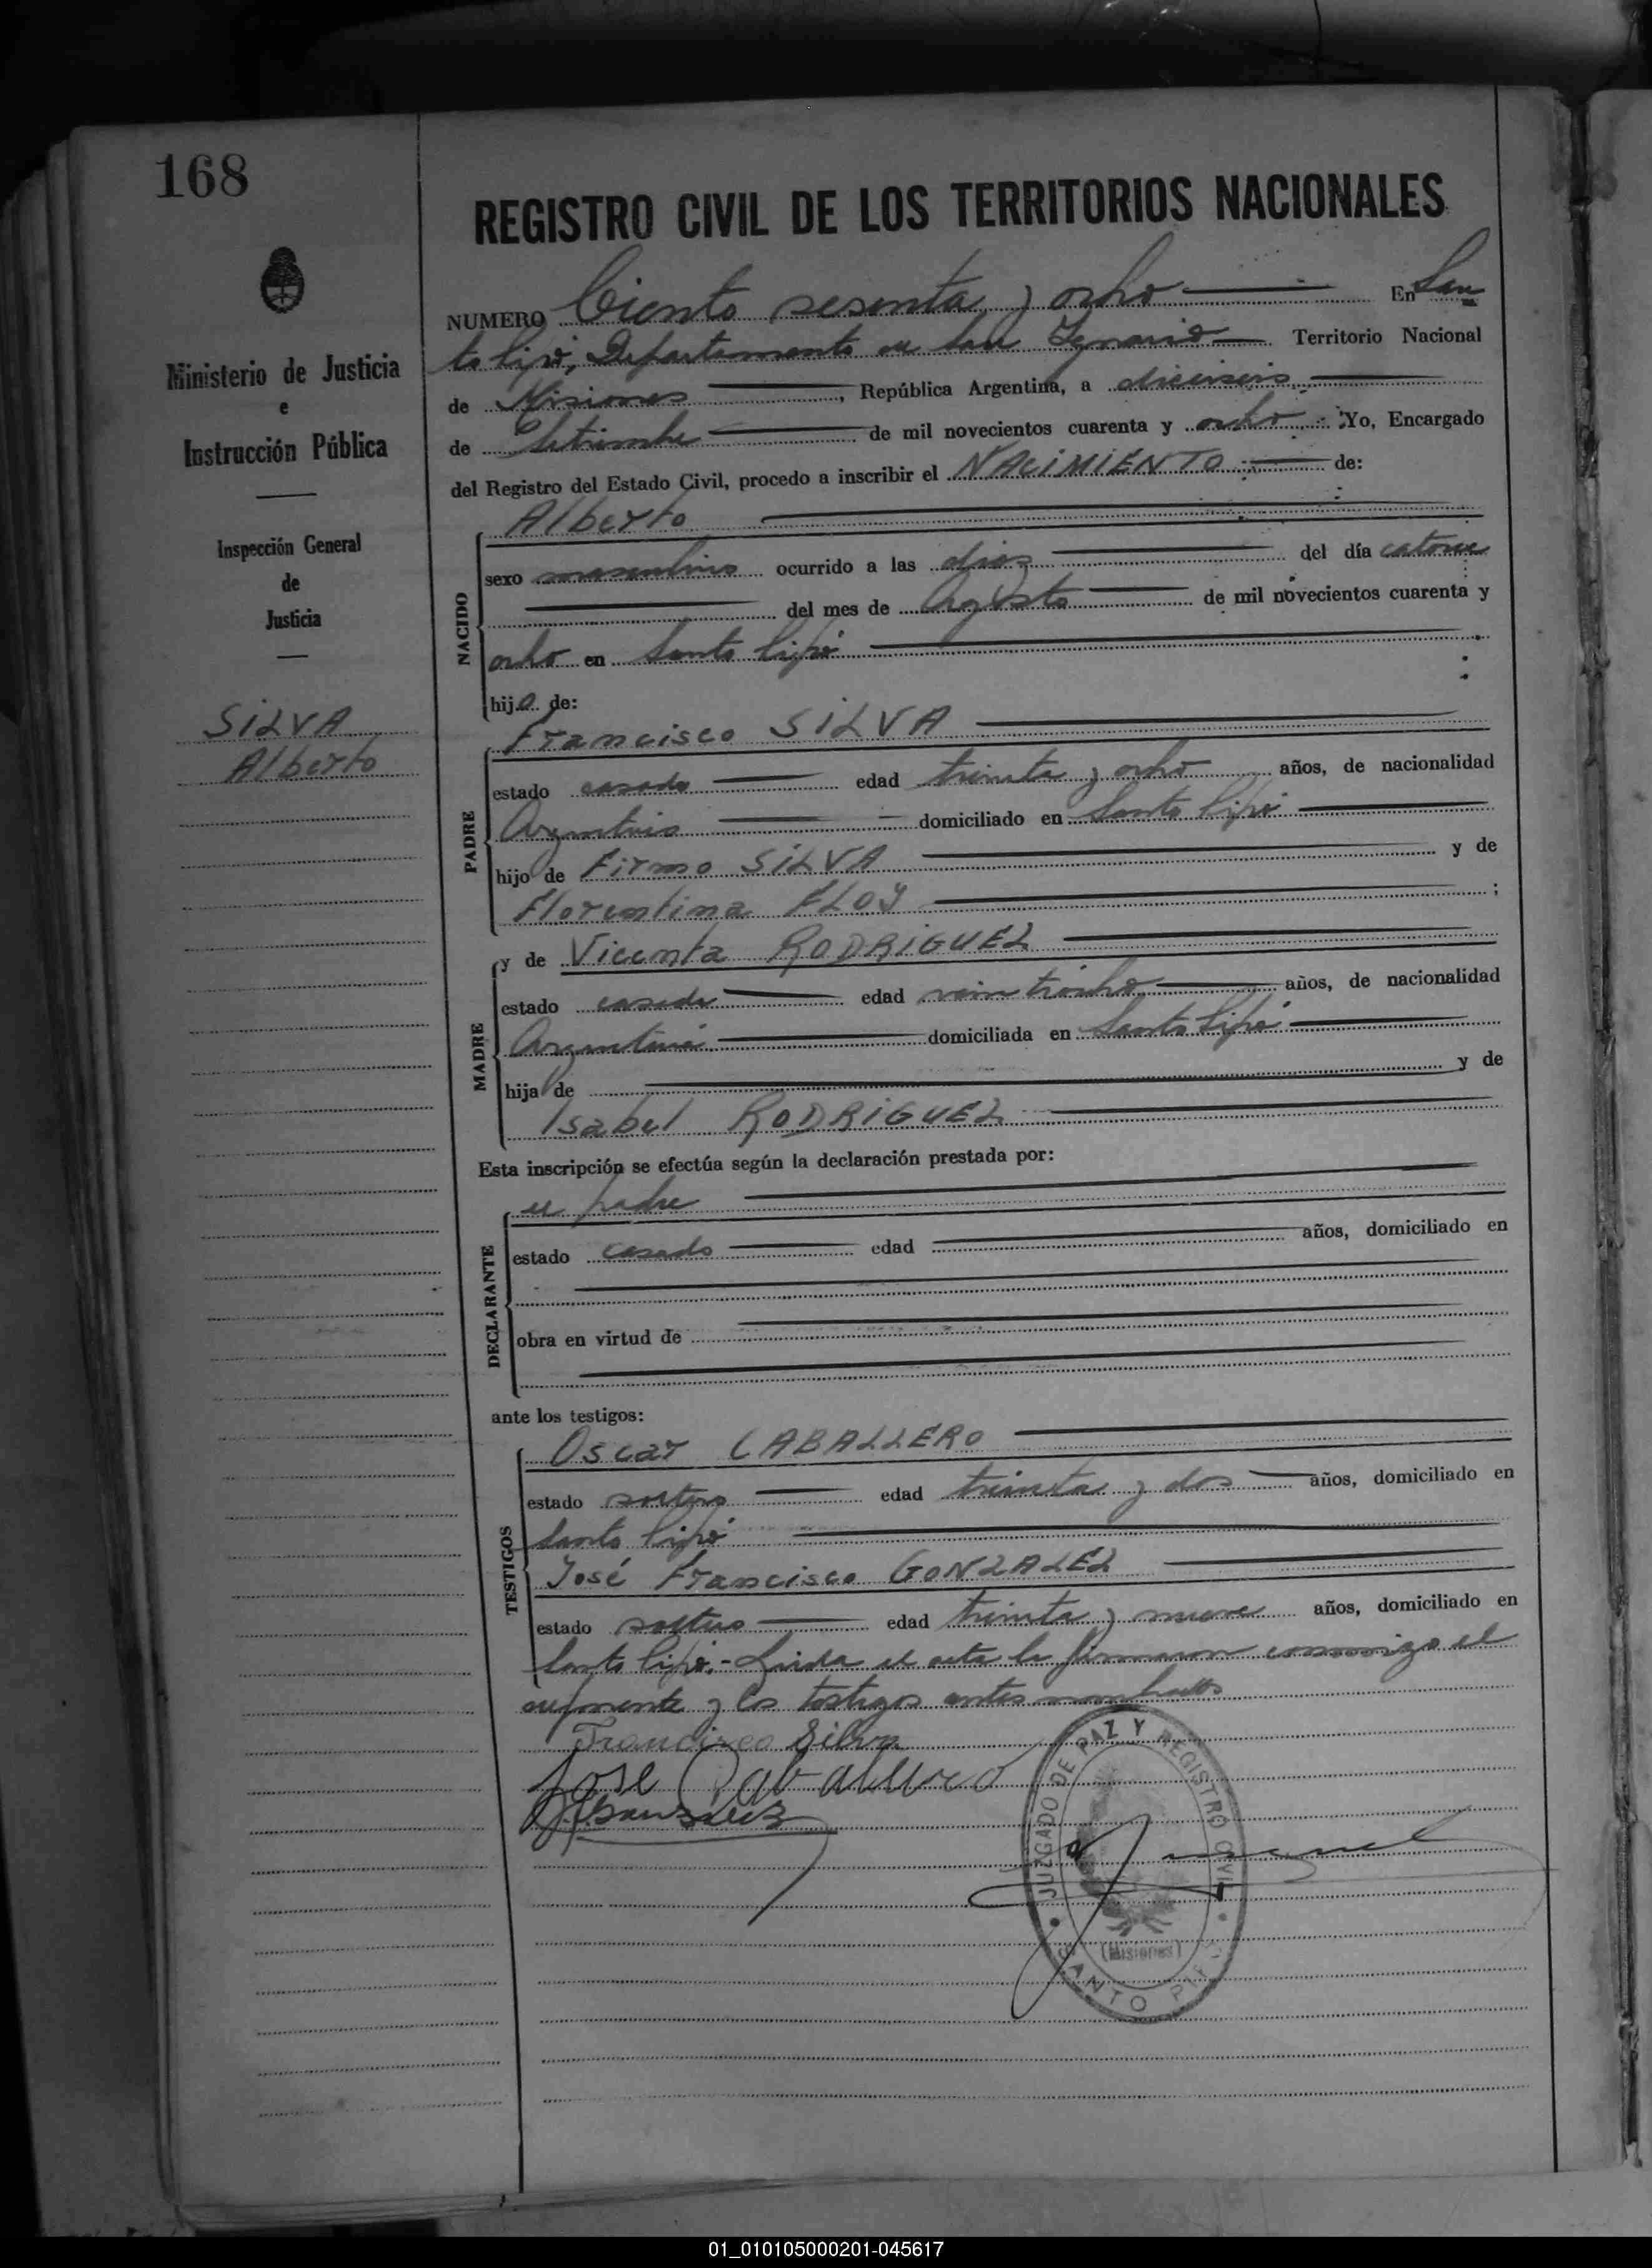 168
REGISTRO CIVIL DE LOS TERRITORIOS NACIONALES
Ministerio de Justicia
e
Instrucción Pública
Inspección General
de
Justicia
SILVA
Alberto
NUMERO Ciento sesenta y ocho En San
to Pipó, Departamento de San Ignacio Territorio Nacional
de Misiones, República Argentina, a dieciseis
de Setiembre de mil novecientos cuarenta y ocho. Yo, Encargado
del Registro del Estado Civil, procedo a inscribir el NACIMIENTO de:
NACIDO
Alberto
sexo masculino ocurrido a las diez del día catorce
del mes de Agosto de mil novecientos cuarenta y
ocho en Santo Pipó
hijo de:
PADRE
Francisco SILVA
estado casado edad treinta y ocho años, de nacionalidad
Argentina domiciliado en Santo Pipó
hijo de Firmo SILVA y de
Florentina FLOY ;
MADRE
y de Vicenta RODRIGUEZ
estado casada edad veintiocho años, de nacionalidad
Argentina domiciliada en Santo Pipó
hija de y de
Isabel RODRIGUEZ
Esta inscripción se efectúa según la declaración prestada por:
DECLARANTE
el padre
estado casado edad años, domiciliado en
obra en virtud de
ante los testigos:
TESTIGOS
Oscar CABALLERO
estado soltero edad treinta y dos años, domiciliado en
Santo Pipó
José Francisco GONZALEZ
estado soltero edad treinta y nueve años, domiciliado en
Santo Pipó.- Leída el acta la firmaron conmigo el
exponente y los testigos antes nombrados
Francisco Silva
José Caballero
J.F. Gonzalez
JUZGADO DE PAZ Y REGISTRO CIVIL
(Misiones)
SANTO PIPO
01_010105000201-045617